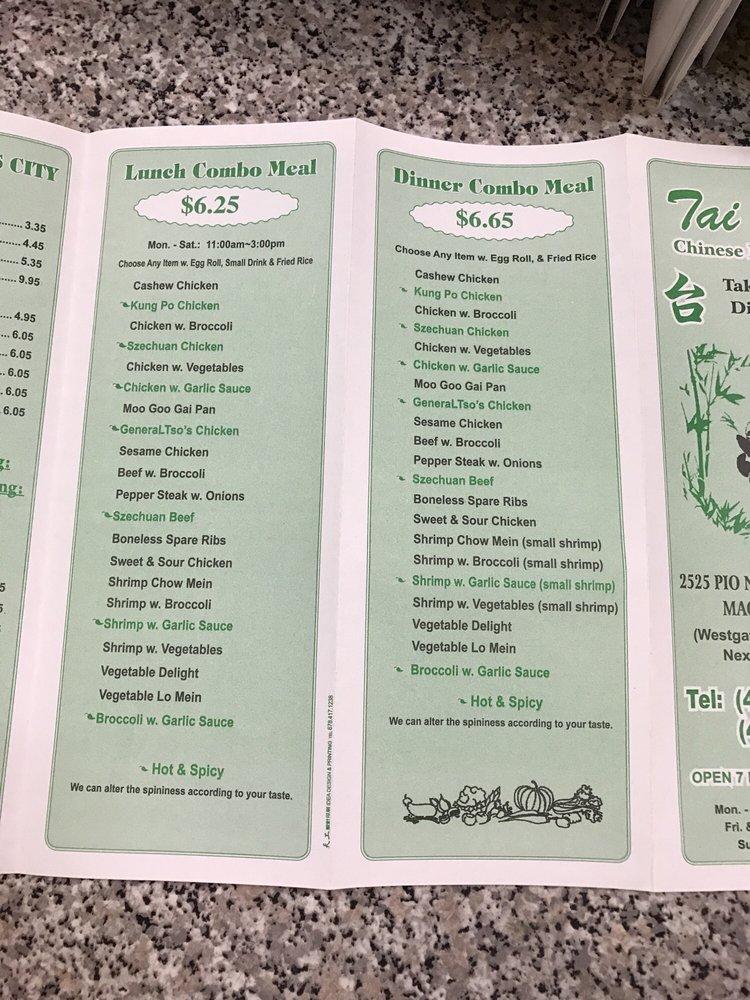 S CITY
3.35
4.45
5.35
9.95
4.95
6.05
6.05
6.05
6.05
g:
ng:
5
5
Lunch Combo Meal
$6.25
Mon. - Sat.: 11:00am~3:00pm
Choose Any Item w. Egg Roll, Small Drink & Fried Rice
Cashew Chicken
Kung Po Chicken
Chicken w. Broccoli
Szechuan Chicken
Chicken w. Vegetables
Chicken w. Garlic Sauce
Moo Goo Gai Pan
GeneraLTso's Chicken
Sesame Chicken
Beef w. Broccoli
Pepper Steak w. Onions
Szechuan Beef
Boneless Spare Ribs
Sweet & Sour Chicken
Shrimp Chow Mein
Shrimp w. Broccoli
Shrimp w. Garlic Sauce
Shrimp w. Vegetables
Vegetable Delight
Vegetable Lo Mein
Broccoli w. Garlic Sauce
Hot & Spicy
We can alter the spininess according to your taste.
天工設計印刷 IDEA DESIGN & PRINTING TEL 678.417.1238
Dinner Combo Meal
$6.65
Choose Any Item w. Egg Roll, & Fried Rice
Cashew Chicken
Kung Po Chicken
Chicken w. Broccoli
Szechuan Chicken
Chicken w. Vegetables
Chicken w. Garlic Sauce
Moo Goo Gai Pan
GeneraLTso's Chicken
Sesame Chicken
Beef w. Broccoli
Pepper Steak w. Onions
Szechuan Beef
Boneless Spare Ribs
Sweet & Sour Chicken
Shrimp Chow Mein (small shrimp)
Shrimp w. Broccoli (small shrimp)
Shrimp w. Garlic Sauce (small shrimp)
Shrimp w. Vegetables (small shrimp)
Vegetable Delight
Vegetable Lo Mein
Broccoli w. Garlic Sauce
Hot & Spicy
We can alter the spininess according to your taste.
Tai
Chinese
台
Tak
Di
2525 PIO N
MAC
(Westga
Nex
Tel: (4
(4
OPEN 7
Mon. -
Fri. &
Su